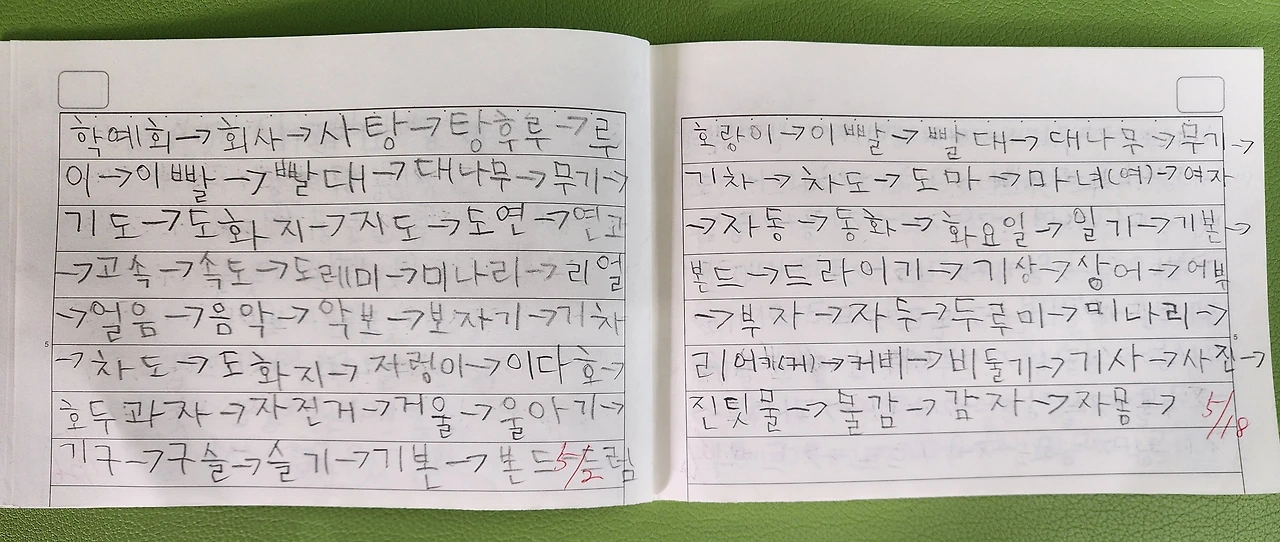 학예회→회사→사탕→탕후루→루
이→이빨→빨대→대나무→무기→
기도→도화지→지도→도연→연고
→고속→속도→도레미→미나리→리얼
→얼음→음악→악보→보자기→기차
→차도→도화지→지렁이→이다호→
호두과자→자전거→거울→울아기→
기구→구슬→슬기→기본→본드→드림
5/2
호랑이→이빨→빨대→대나무→무기→
기차→차도→도마→마녀(여)→여자
→자동→동화→화요일→일기→기본→
본드→드라이기→기상→상어→어부
→부자→자두→두루미→미나리→
리어카(커)→커비→비둘기→기사→사진→
진팃물→물감→감자→자몽→
5/18